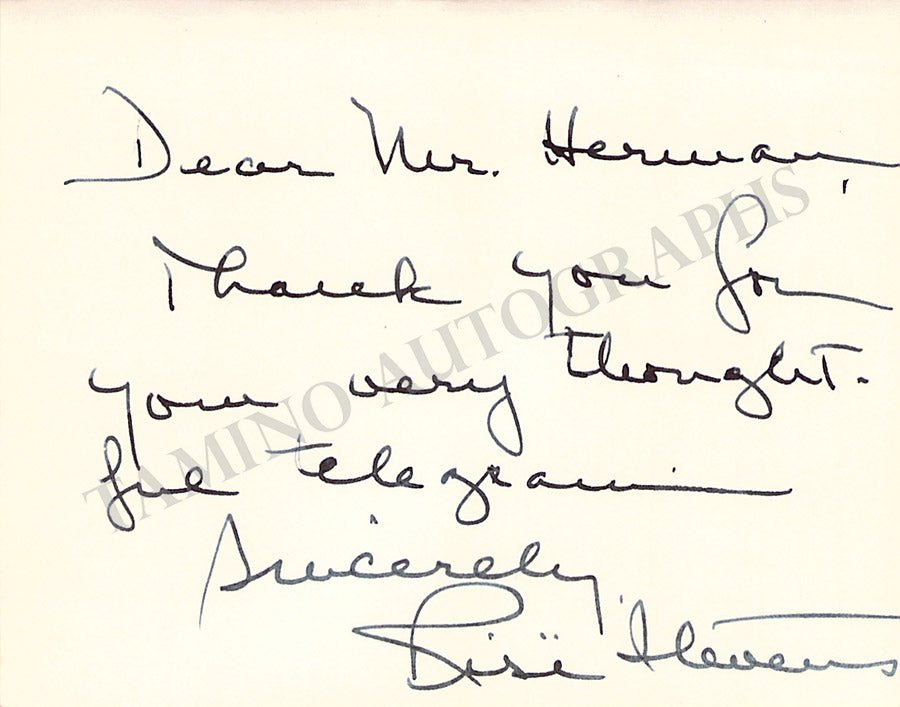 Dear Mr. Herman,
Thank you for
your very thought-
ful telegram
Sincerely,
Risë Stevens
TAMINO AUTOGRAPHS